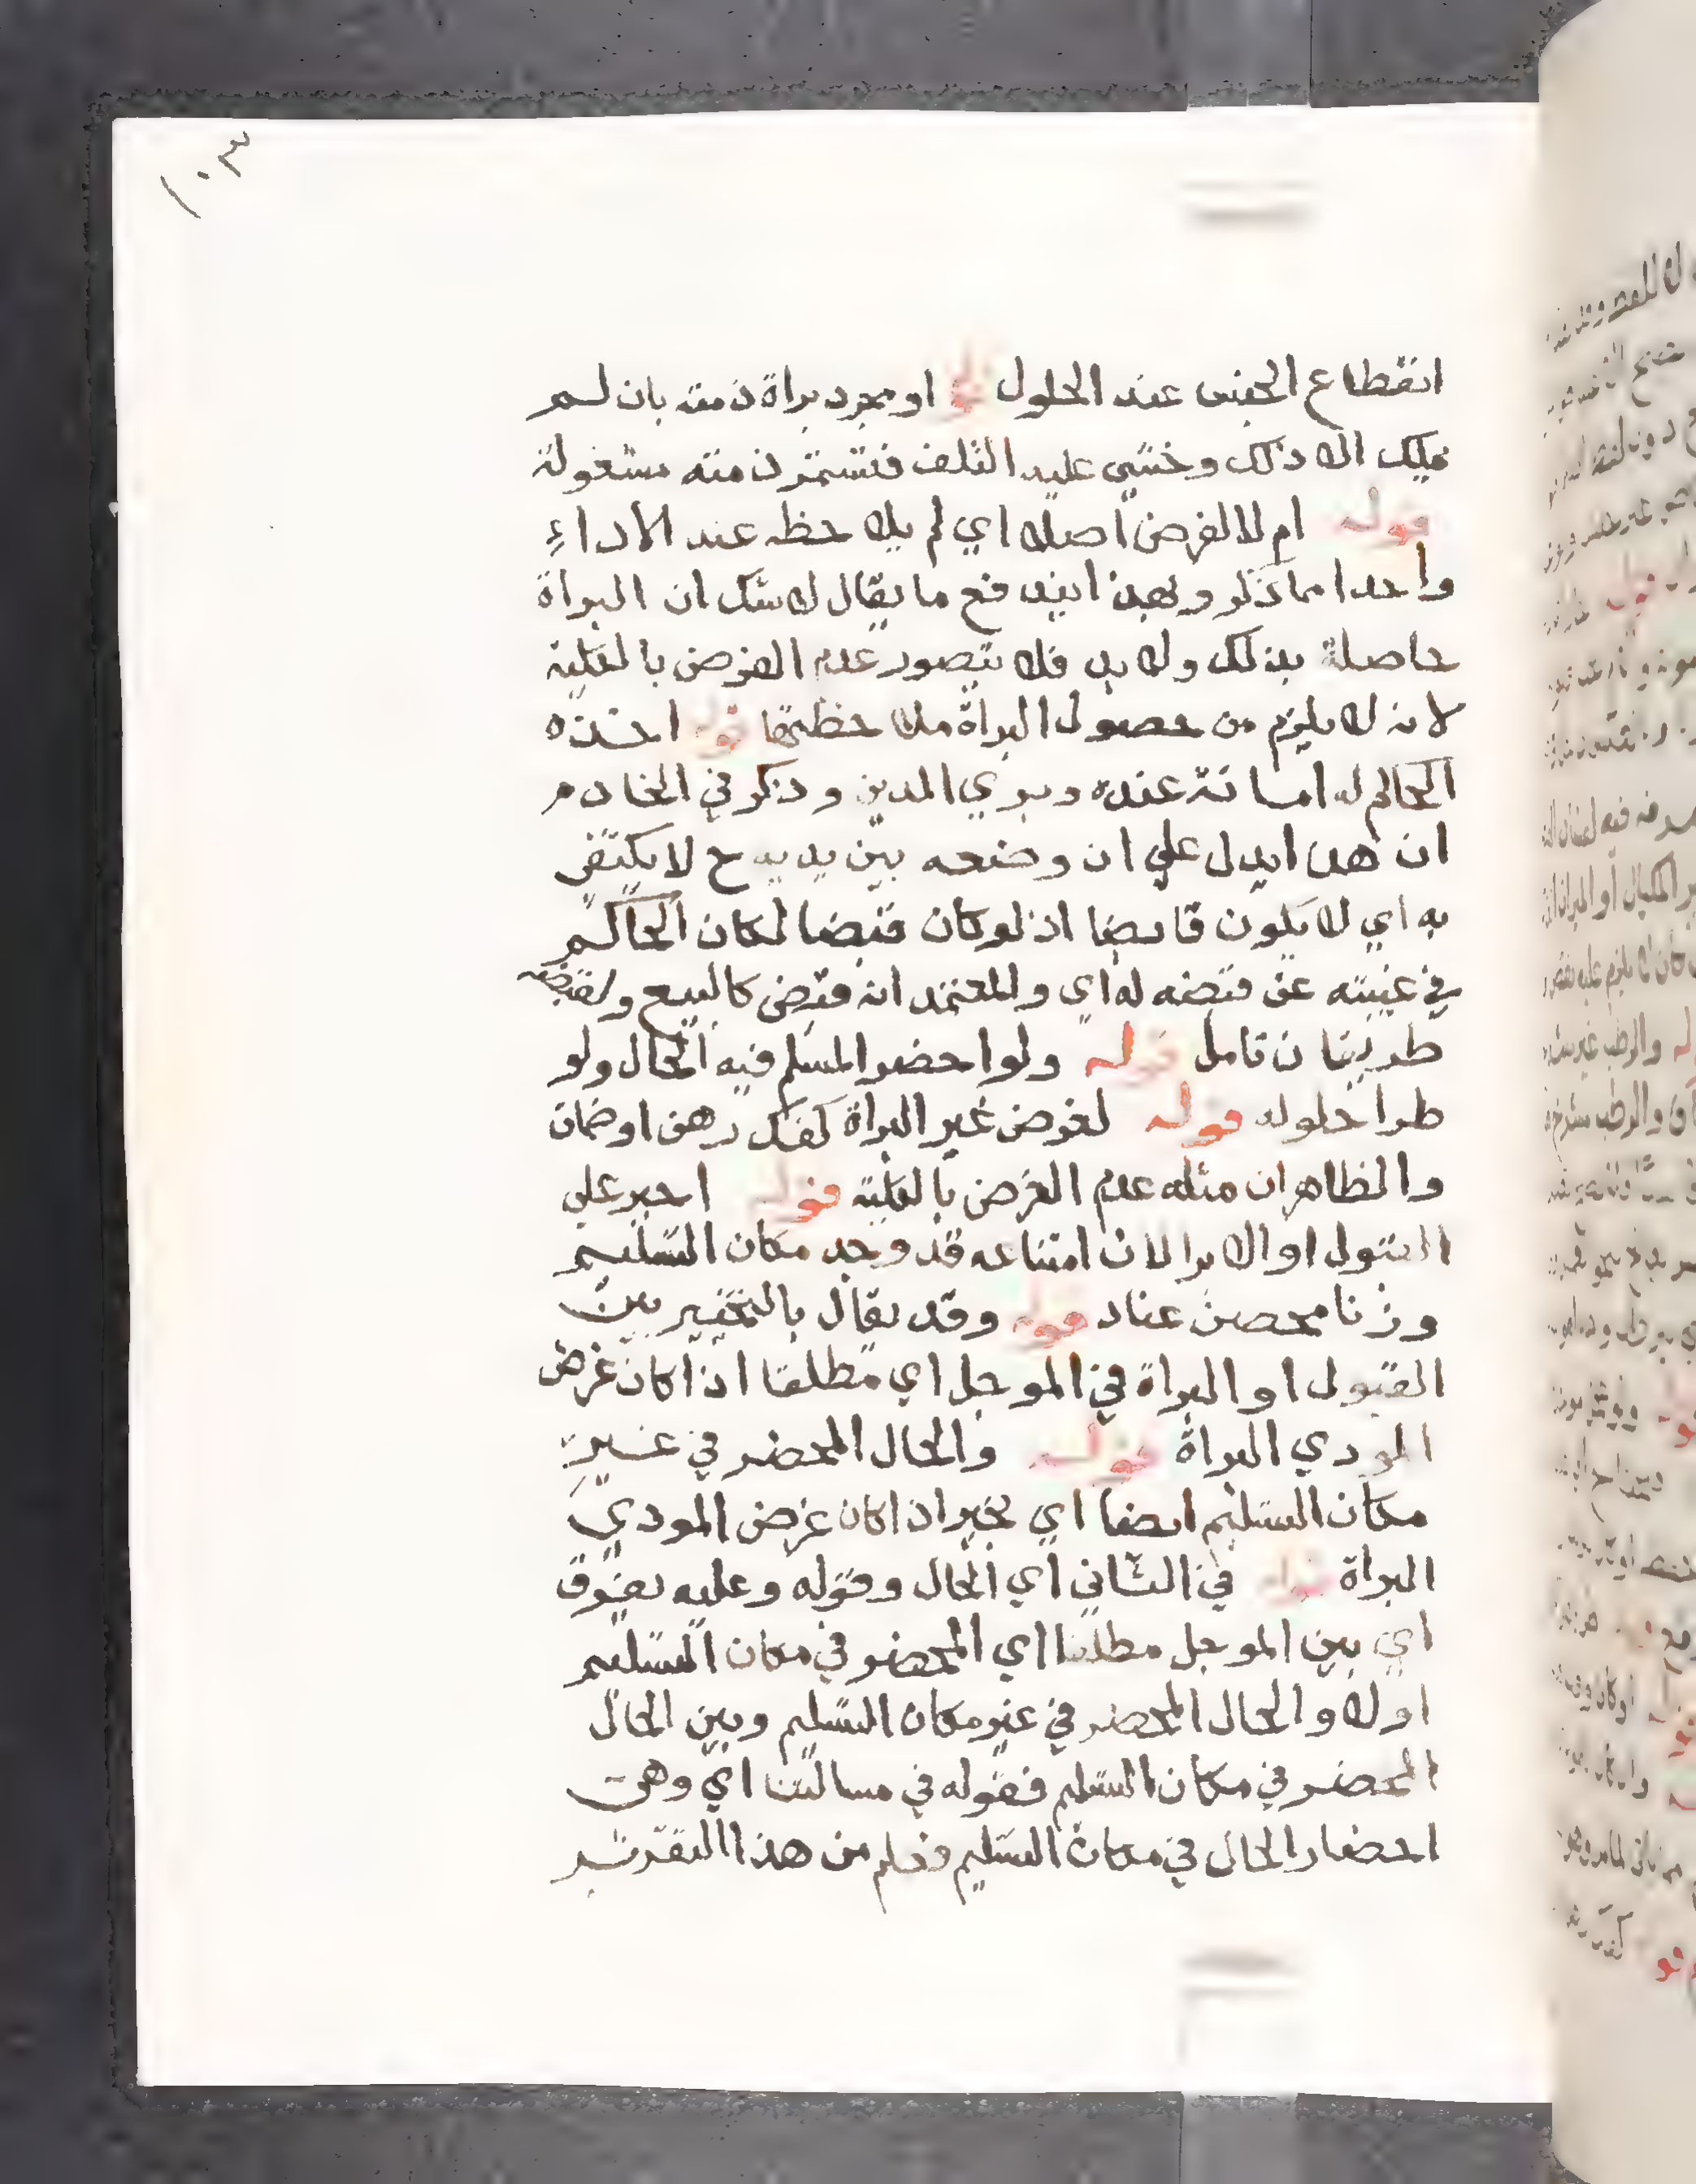 ١٠٣
انقطاع الجنس عند الحلول قوله او مجرد براة ذمته بان لم
يملك الا ذلك وخشي عليه التلف فتستمر ذمته مشغولة
قوله ام لا لغرض اصلا اي لم يلاحظه عند الاداء
واحدا مما ذكر وبهذا يندفع ما يقال لا شك ان البراة
حاصلة بذلك ولا بد فلا يتصور عدم الغرض بالكلية
لانه لا يلزم من حصول البراة ملاحظتها قوله اخذه
الحاكم له امانة عنده وبري المدين وذكر في الخادم
ان هذا يدل علي ان وضعه بين يديه ح لا يكتفي
به اي لا يكون قابضا اذ لو كان قبضا لكان الحاكم
في غيبته عن قبضه له اي والمعتمد انه قبض كالبيع ولقبضه
طريقان تامل قوله ولو احضر المسلم فيه الحال ولو
طرا حلوله قوله لغرض غير البراة كفك رهن او ضمان
والظاهر ان مثله عدم الغرض بالكلية قوله اجبر علي
القبول او الابرا لان امتناعه قد وجد مكان التسليم
وزنا محصن عناد قوله وقد يقال بالتخيير بين
القبول او البراة في الموجل اي مطلقا اذا كان غرض
المودي البراة قوله والحال المحضر في غير
مكان التسليم ايضا اي يخير اذا كان غرض المودي
البراة قوله في الثاني اي الحال وقوله وعليه يفرق
اي بين الموجل مطلقا اي المحضر في مكان التسليم
اولا والحال المحضر في غير مكان التسليم وبين الحال
المحضر في مكان التسليم فقوله في مسالتنا اي وهي
احضار الحال في مكان التسليم فعلم من هذا التقرير